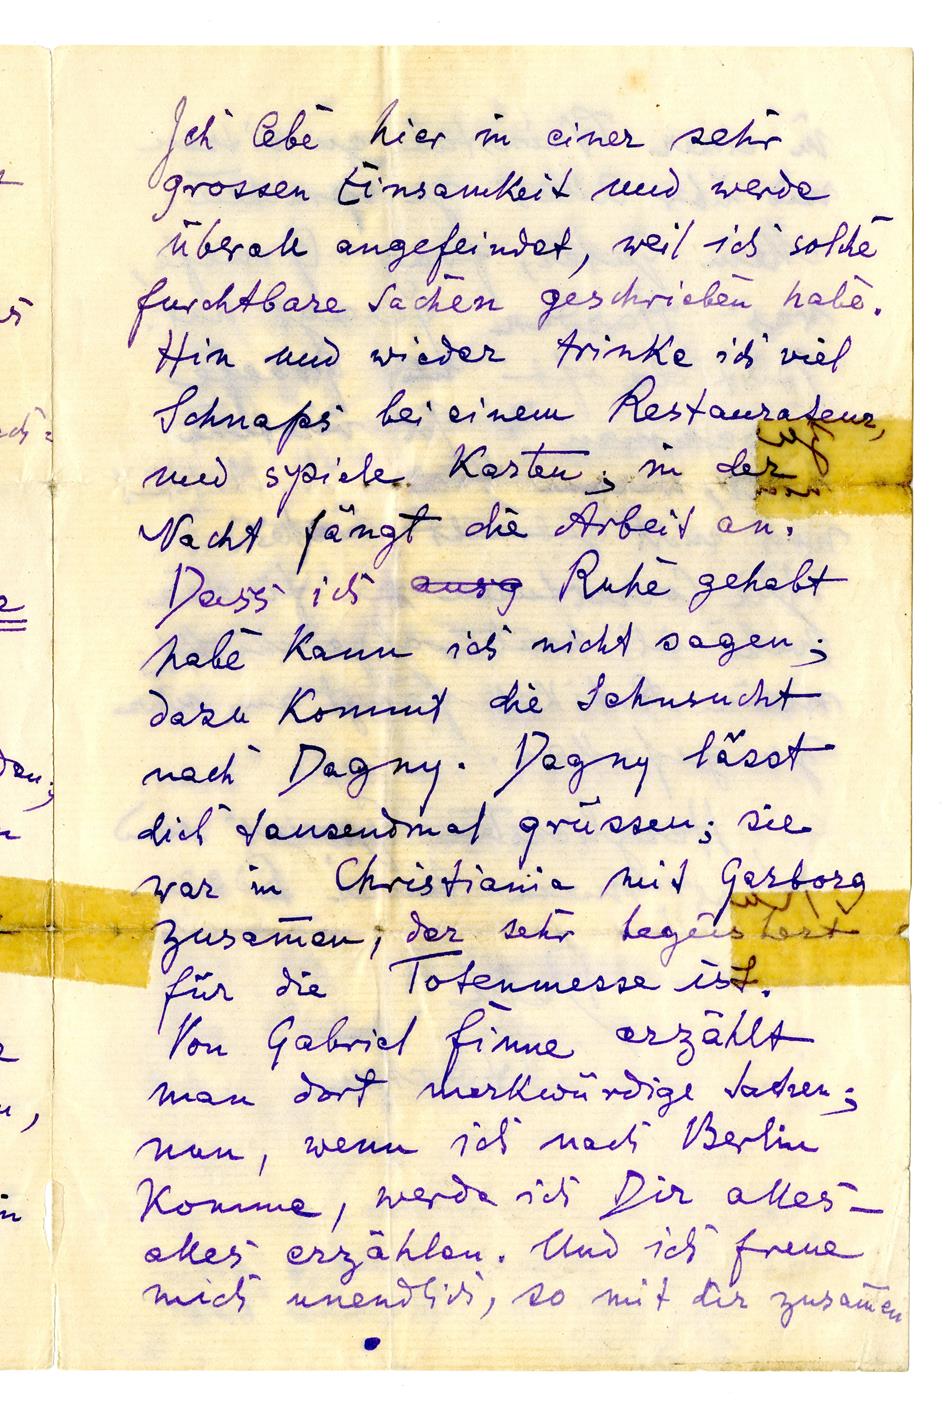 Ich lebe hier in einer sehr
grossen Einsamkeit und werde
überall angefeindet, weil ich solche
furchtbare Sachen geschrieben habe.
Hin und wieder trinke ich viel
Schnaps bei einem Restaurateur,
und spiele Karten; in der
Nacht fängt die Arbeit an.
Dass ich ausg Ruhe gehabt
habe kann ich nicht sagen;
dazu kommt die Sehnsucht
nach Dagny. Dagny lässt
dich tausendmal grüssen; sie
war in Christiania mit Garborg
zusam̄en, der sehr begeistert
für die Totenmesse ist.
Von Gabriel Finne erzählt
man dort merkwürdige Sachen;
nun, wenn ich nach Berlin
komme, werde ich Dir alles –
alles erzählen. Und ich freue
mich unendlich, so mit dir zusam̄en